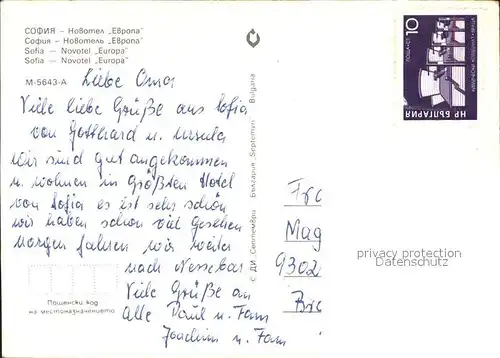 СОФИЯ — Новотел „Европа"
София — Новотель „Европа"
Sofia — Novotel „Europa"
Sofia — Novotel „Europa"
М-5643-А
Liebe Oma
Viele liebe Grüße aus Sofia
von Gotthard u. Ursula
wir sind gut angekommen
u. wohnen in Größten Hotel
von Sofia es ist sehr schön
wir haben schon viel gesehen
morgen fahren wir weiter
nach Nessebar
Viele Grüße an
Alle Paul u. Fam
Joachim u. Fam
Пощенски код
на местоназначението
© ДИ „Септември" България „Septemvri" Bulgaria
10
ПОЩА
НР БЪЛГАРИЯ
Frc
Mag
9302
privacy protection
Datenschutz